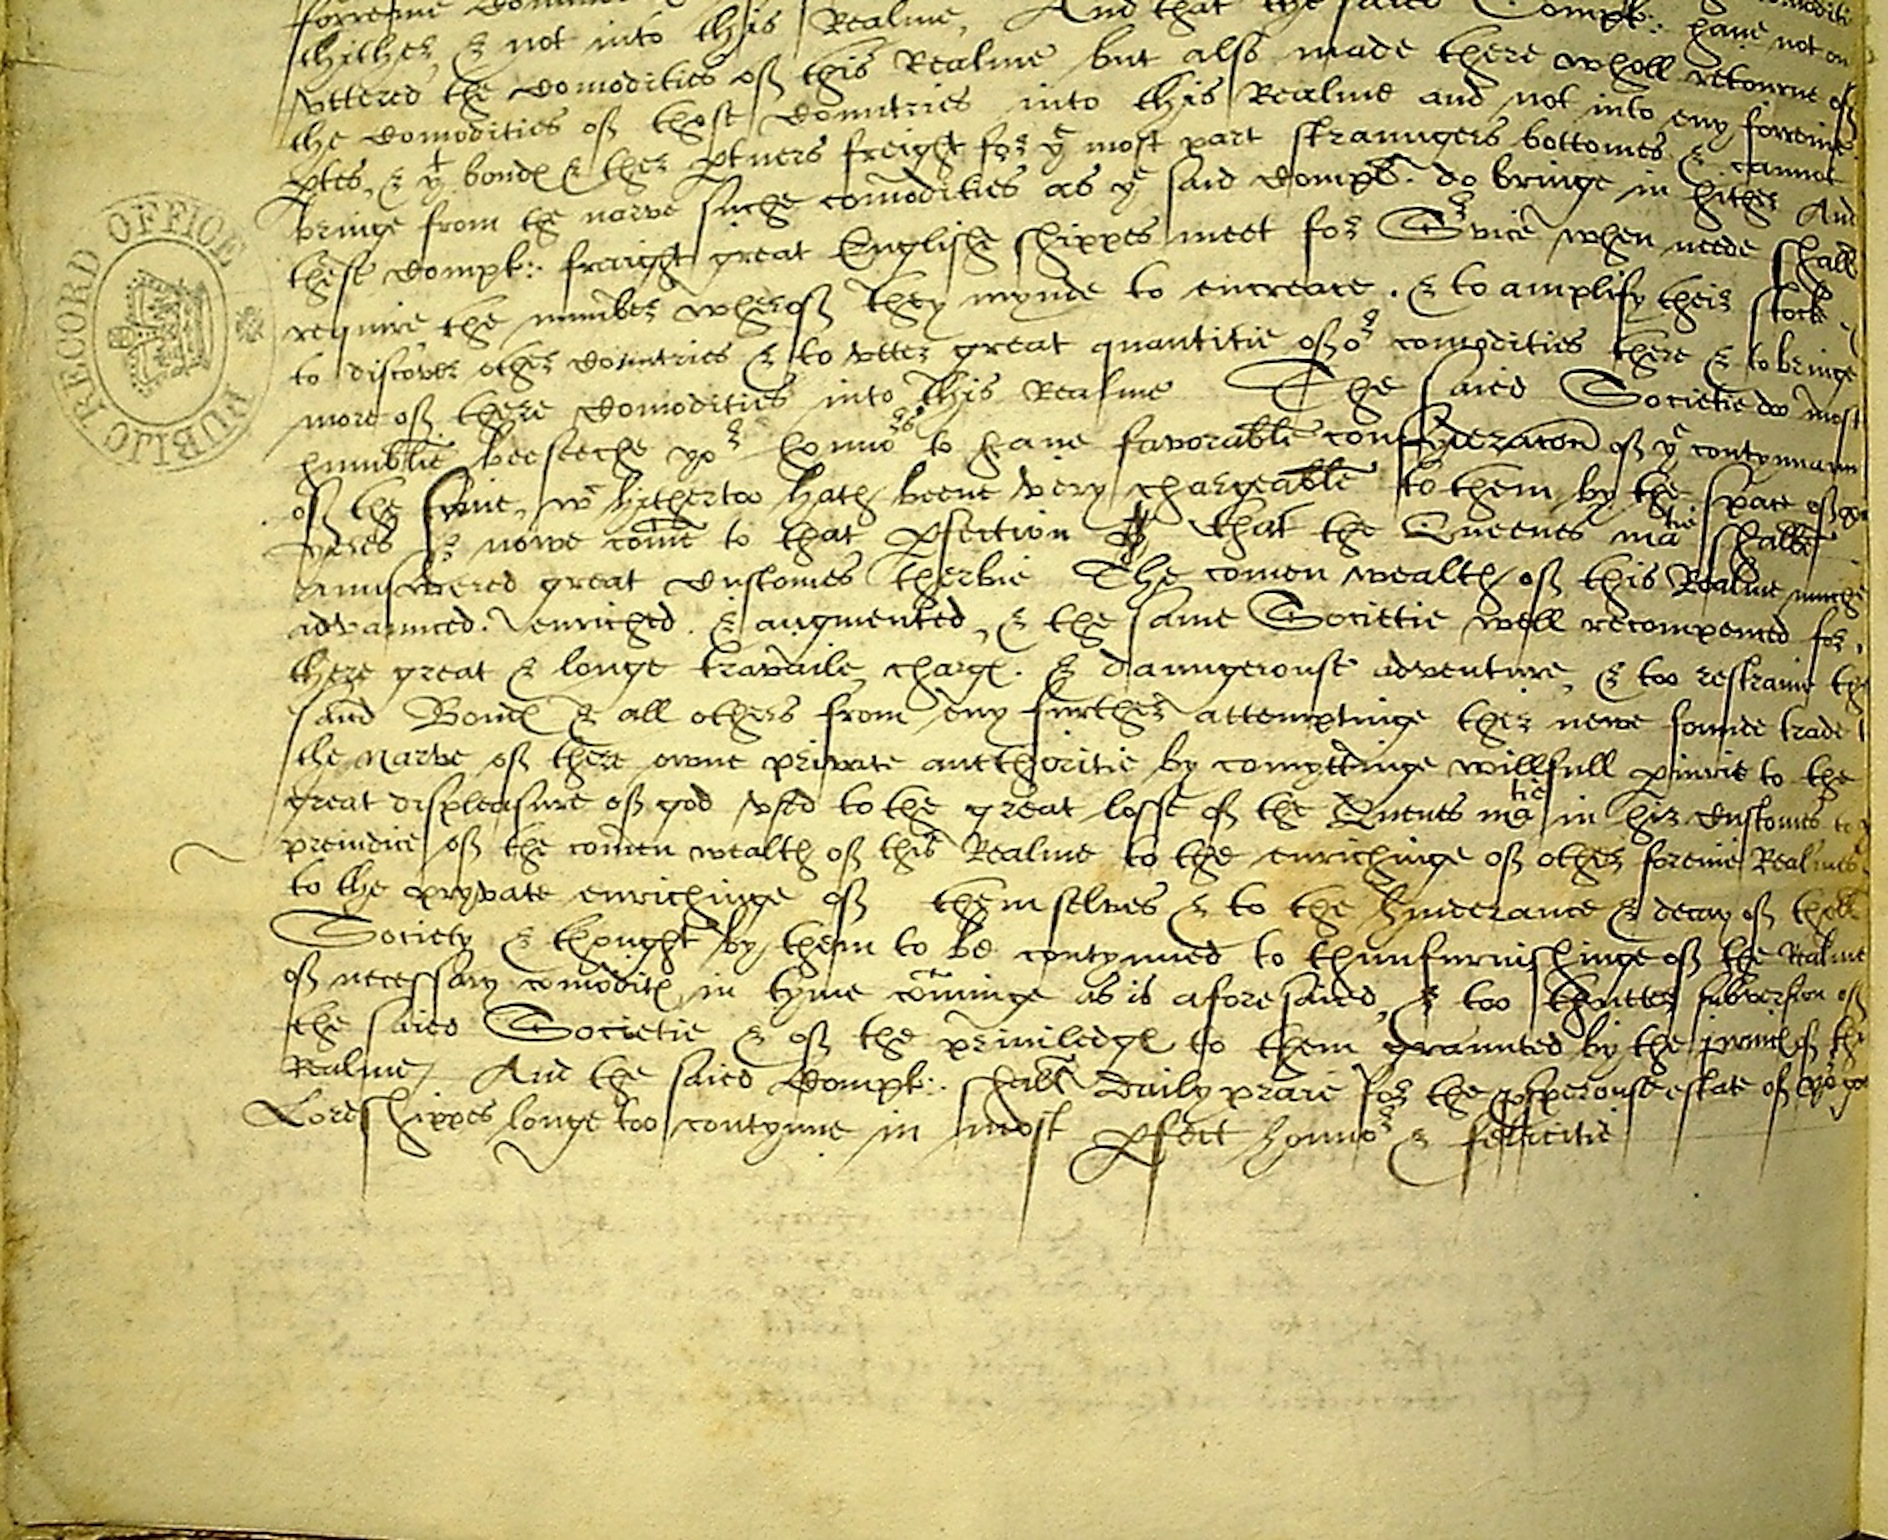 thither & not into this Realme, And that the saied Compt: have not on
vttered the Comodities off this Realme but also made there wholl retourne off
the Comodities off those Countries into this Realme and not into eny forreine
ptes, & yt bond & ther ptners freight for ye most part straungers bottomes & cannot
bringe from the narve suche comodities as ye said Complts do bringe in hither And
these Compt: fraight great Englishe shippes meet for Service when neede shall
require the number wheroff they mynde to encrease . & to amplify their stock
to discover other Countries & to vtter great quantitie off or comodities there & to bringe
more off there Comodities into this Realme The saied Societie do most
humblie beeseeche yor honnors to have favorable consyderacon off ye contynuaun
off the same, wch hithertoo hath beene very chargeable to them by the space off
yeres & nowe come to that pfection that the Queenes matie shalbe
aunswered great Customes therbie The comen wealth off this Realme muche
advaunced . enriched . & augmented, & the same Societie well recompenced for
there great & longe travaile, charg . & daungerouse adventure, & too restraine the
said Bond & all others from eny further attemptinge ther newe founde trade t
the Narve off there owne private aucthoritie by comyttinge willfull piurie to the
great displeasure off god vsed to the great losse off the Quenes matie in hir Customes to
preiudice off the comen wealth off this Realme to the enrichinge off other foreine Realmes
to the pryvate enrichinge off themselves & to the hinderance & decay off the
Society & thought by them to be contynued to thunfurnishinge off the Realme
off necessary comodit in tyme cominge as is afore saied, & too thutter subversion off
the saied Societie & off the priviledg to them graunted by the off the
Realme / And the saied Compt: shall daily praie for the psperouse estate off yor
Lordeshippes longe too contynue in most pfect honnor & fellicitie
PUBLIC RECORD OFFICE